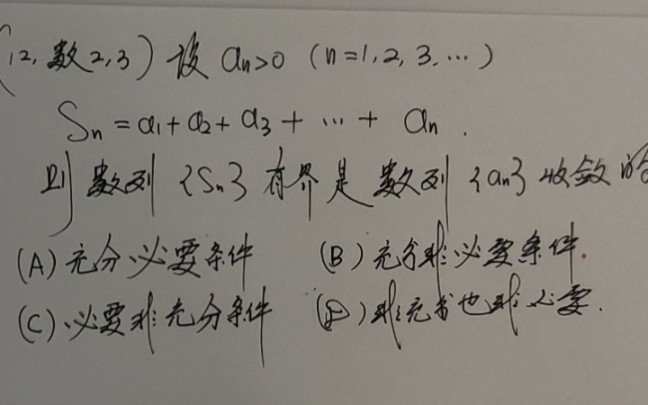 (12, 数2,3) 设 aₙ>0 (n=1,2,3,…)
Sₙ = a₁+a₂+a₃+…+aₙ.
则数列{Sₙ}有界是数列{aₙ}收敛的
(A) 充分必要条件 (B) 充分非必要条件.
(C) 必要非充分条件 (D) 非充分也非必要.